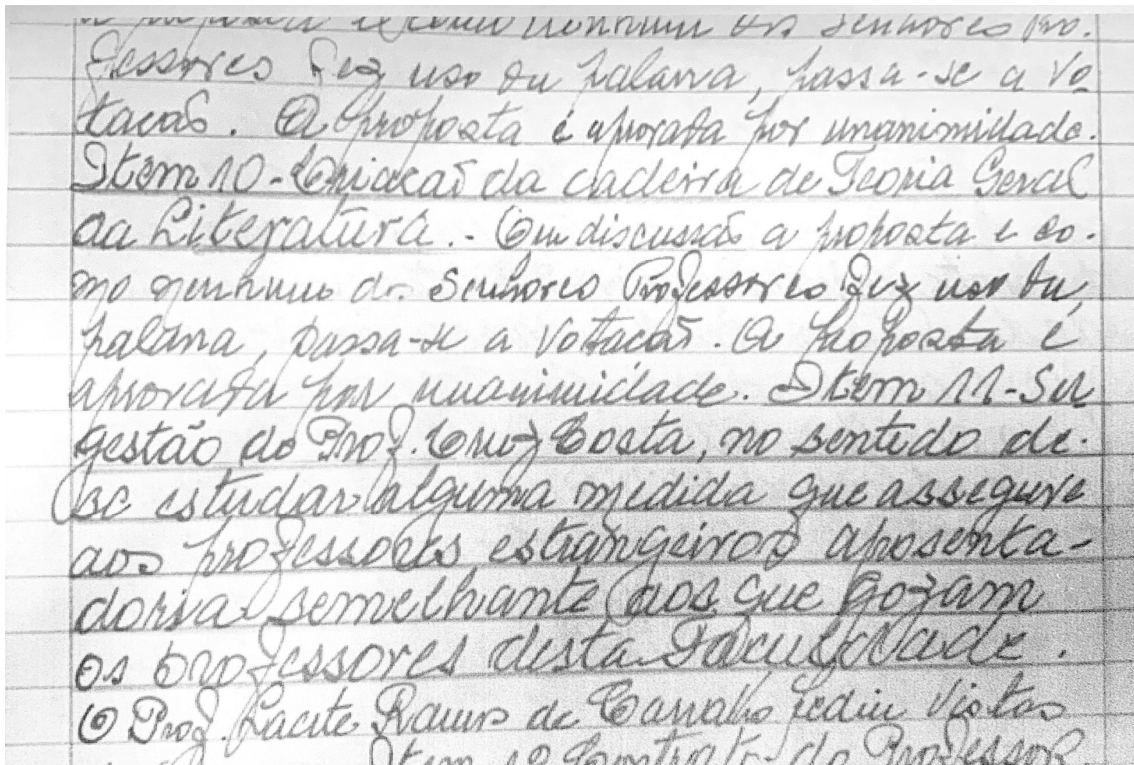 a proposta e como nenhum dos senhores Pro-
fessores fez uso da palavra, passa-se a vo-
tacaõ. A proposta é aprovada por unanimidade.
Item 10 - Criacaõ da cadeira de Teoria Geral
da Literatura. - Em discussaõ a proposta e co-
mo nenhum dos Senhores Professores fez uso da
palavra, passa-se a votacaõ. A proposta é
aprovada por unanimidade. Item 11 - Su
gestão do Prof. Cruz Costa, no sentido de
se estudar alguma medida que assegure
aos professores estrangeiros aposenta-
doria semelhante aos que gozam
os professores desta Faculdade.
O Prof. Laerte Ramos de Carvalho pediu vistas
Item 12 Contrato do Professor